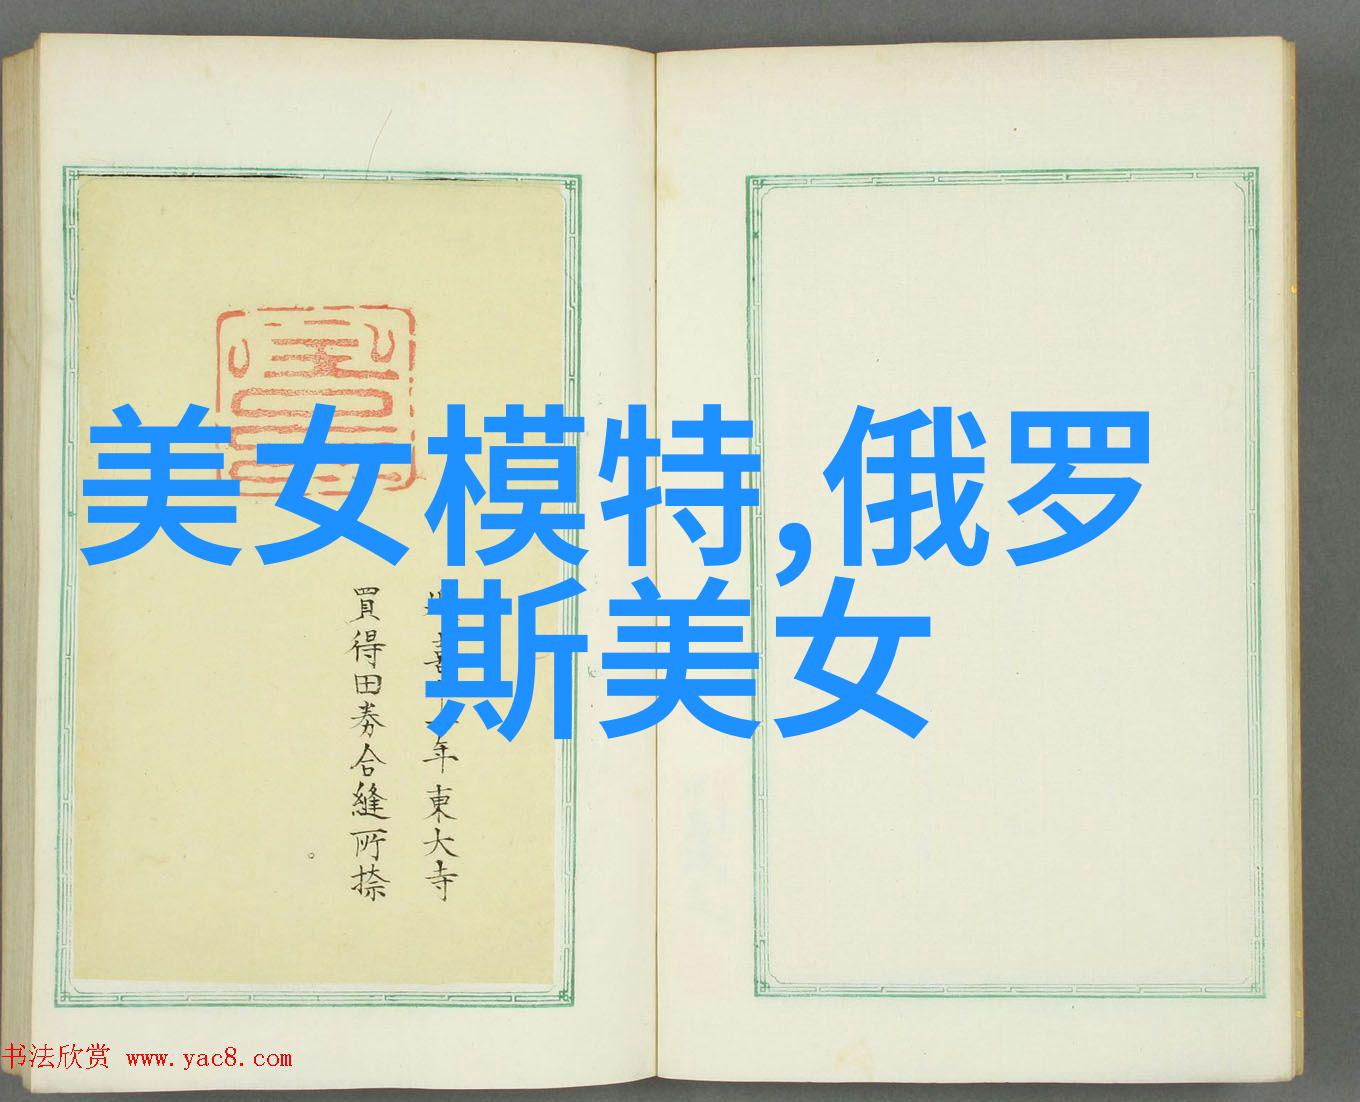 美女模特,俄罗
斯美女
年東大寺
買得田券合縫所捺
书法欣赏 www.yac8.com